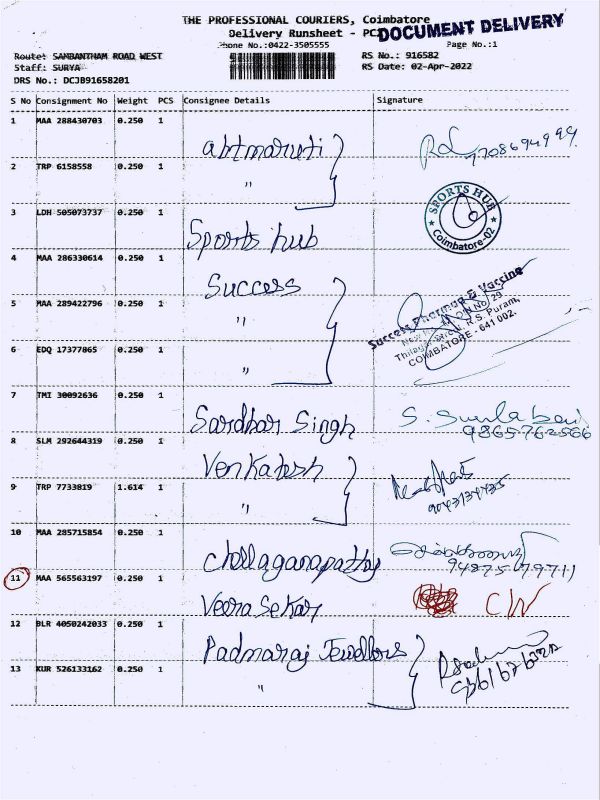 THE PROFESSIONAL COURIERS, Coimbatore
Delivery Runsheet - PCI
DOCUMENT DELIVERY
Phone No.:0422-3505555
Page No.:1
Route: SAMBANTHAM ROAD WEST
RS No.: 916582
Staff: SURYA
RS Date: 02-Apr-2022
DRS No.: DCJB91658201
S No Consignment No Weight PCS Consignee Details Signature
1 MAA 288430703 0.250 1
abtmaruti
2 TRP 6158558 0.250 1
"
3 LDH 505073737 0.250 1
Sports hub
SPORTS HUB
Coimbatore-02
4 MAA 286330614 0.250 1
Success
Success Pharma & Vaccine
R.S. Puram,
COIMBATORE - 641 002.
5 MAA 289422796 0.250 1
"
6 EDQ 17377865 0.250 1
"
7 TMI 30092636 0.250 1
Sardhar Singh
8 SLM 292644319 0.250 1
Venkatesh
9 TRP 7733819 1.614 1
"
10 MAA 285715854 0.250 1
Chellaganapathy
11 MAA 565563197 0.250 1
Veera Sekar
12 BLR 4050242033 0.250 1
Padmaraj Jewellers
13 KUR 526133162 0.250 1
"